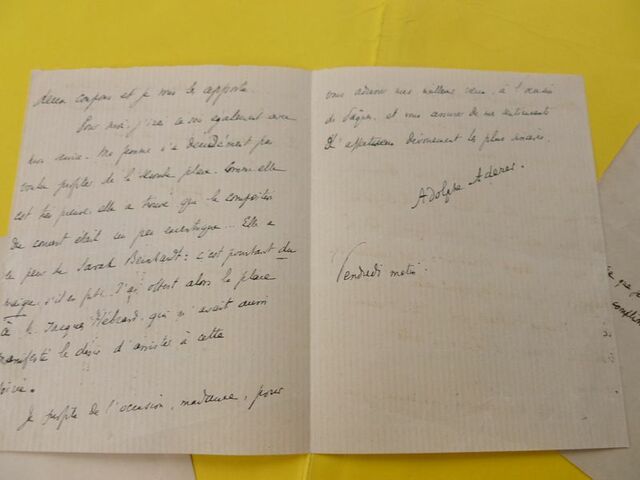 deux coupons et je vous les apporte.
Pour moi, j'irai ce soir également avec
mon amie. Ma femme n'a décidément pas
voulu profiter de la seconde place. Comme elle
est très pieuse, elle a trouvé que la composition
du concert était un peu excentrique... Elle a
eu peur de Sarah Bernhardt : c'est pourtant du
maigre, s'il en fut. J'ai offert alors la place
à M. Jacques Hébrard, qui m'avait aussi
manifesté le désir d'assister à cette
soirée.
Je profite de l'occasion, madame, pour
vous adresser mes meilleurs vœux, à l'occasion
de Pâques, et vous assurer de mes sentiments
d'affectueux dévouement les plus sincères.
Adolphe Aderer.
Vendredi matin.